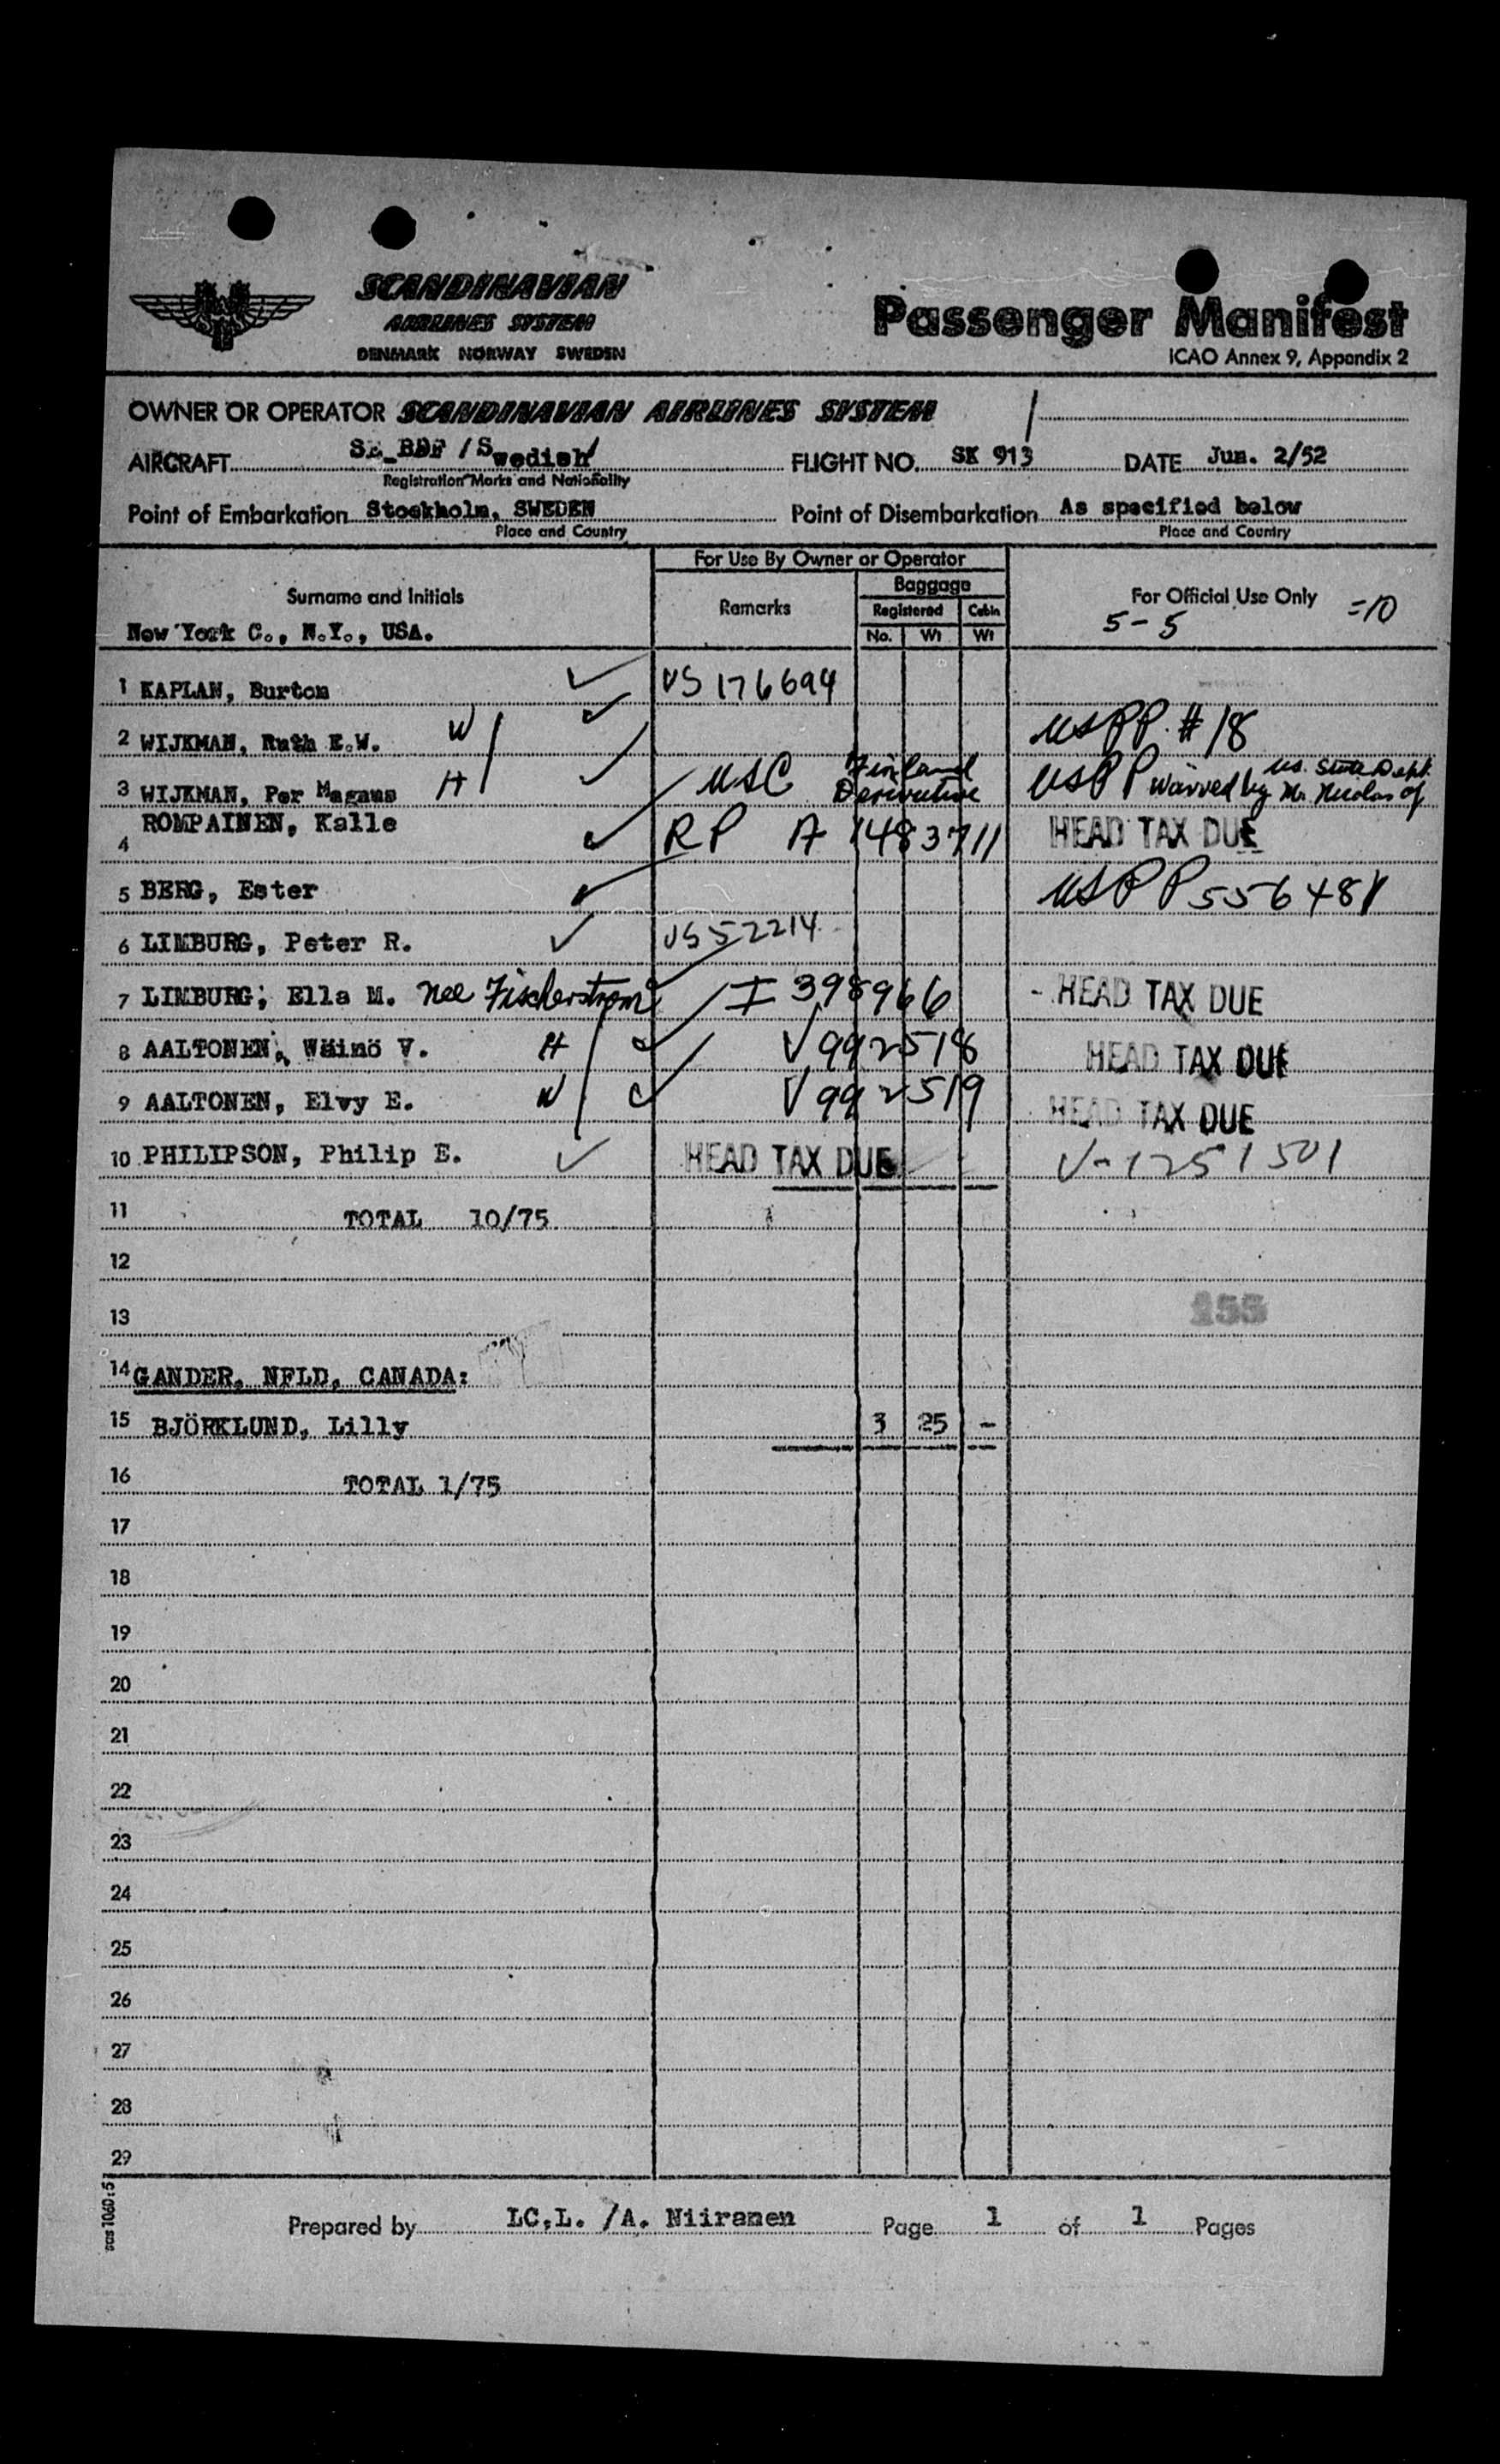 SCANDINAVIAN
AIRLINES SYSTEM
DENMARK NORWAY SWEDEN
Passenger Manifest
ICAO Annex 9, Appendix 2
OWNER OR OPERATOR SCANDINAVIAN AIRLINES SYSTEM
AIRCRAFT SE_BDF /Swedish/ FLIGHT NO. SK 913 DATE Jun. 2/52
Registration Marks and Nationality
Point of Embarkation Stockholm, SWEDEN Point of Disembarkation As specified below
Place and Country Place and Country
For Use By Owner or Operator
Surname and Initials Remarks Baggage For Official Use Only
Registered Cabin
5-5 =10
New York C., N.Y., USA. No. Wt Wt
1 KAPLAN, Burton VS 176694
2 WIJKMAN, Ruth E.W. W USPP. #18
3 WIJKMAN, Per Magnus H USC Finland Derivative USPP waived by Mr. Nicolas of US. State Dept.
4 ROMPAINEN, Kalle RP A 1483711 HEAD TAX DUE
5 BERG, Ester USPP 556481
6 LIMBURG, Peter R. VS 52214
7 LIMBURG, Ella M. nee Fischerstrom I 398966 - HEAD TAX DUE
8 AALTONEN, Wäinö V. H V992518 HEAD TAX DUE
9 AALTONEN, Elvy E. W V992519 HEAD TAX DUE
10 PHILIPSON, Philip E. HEAD TAX DUE V-1251501
11 TOTAL 10/75
12
13 155
14 GANDER, NFLD, CANADA:
15 BJÖRKLUND, Lilly 3 25 -
16 TOTAL 1/75
17
18
19
20
21
22
23
24
25
26
27
28
29
sas 1060:5
Prepared by LC.L. /A. Niiranen Page 1 of 1 Pages